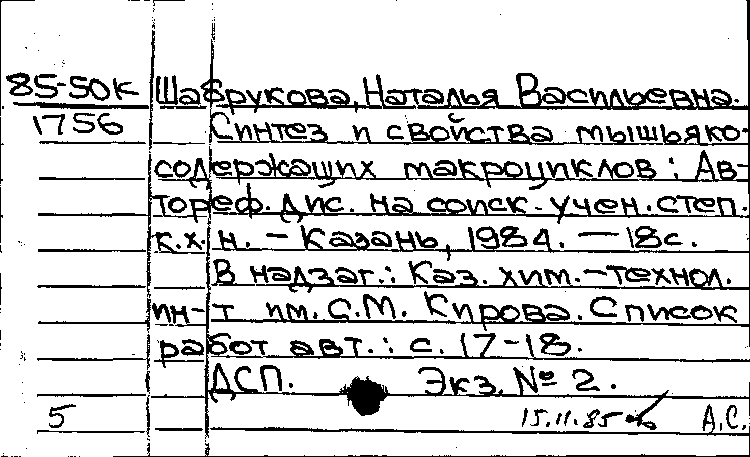 85-50к Шабрукова, Наталья Васильевна.
1756 Синтез и свойства мышьяко-
содержащих макроциклов : Ав-
тореф. дис. на соиск. учен. степ.
к.х.н. - Казань, 1984. - 18с.
В надзаг.: Каз. хим.-технол.
ин-т им. С.М. Кирова. Список
работ авт.: с. 17-18.
ДСП. Экз. № 2.
5 15.11.85 А.С.